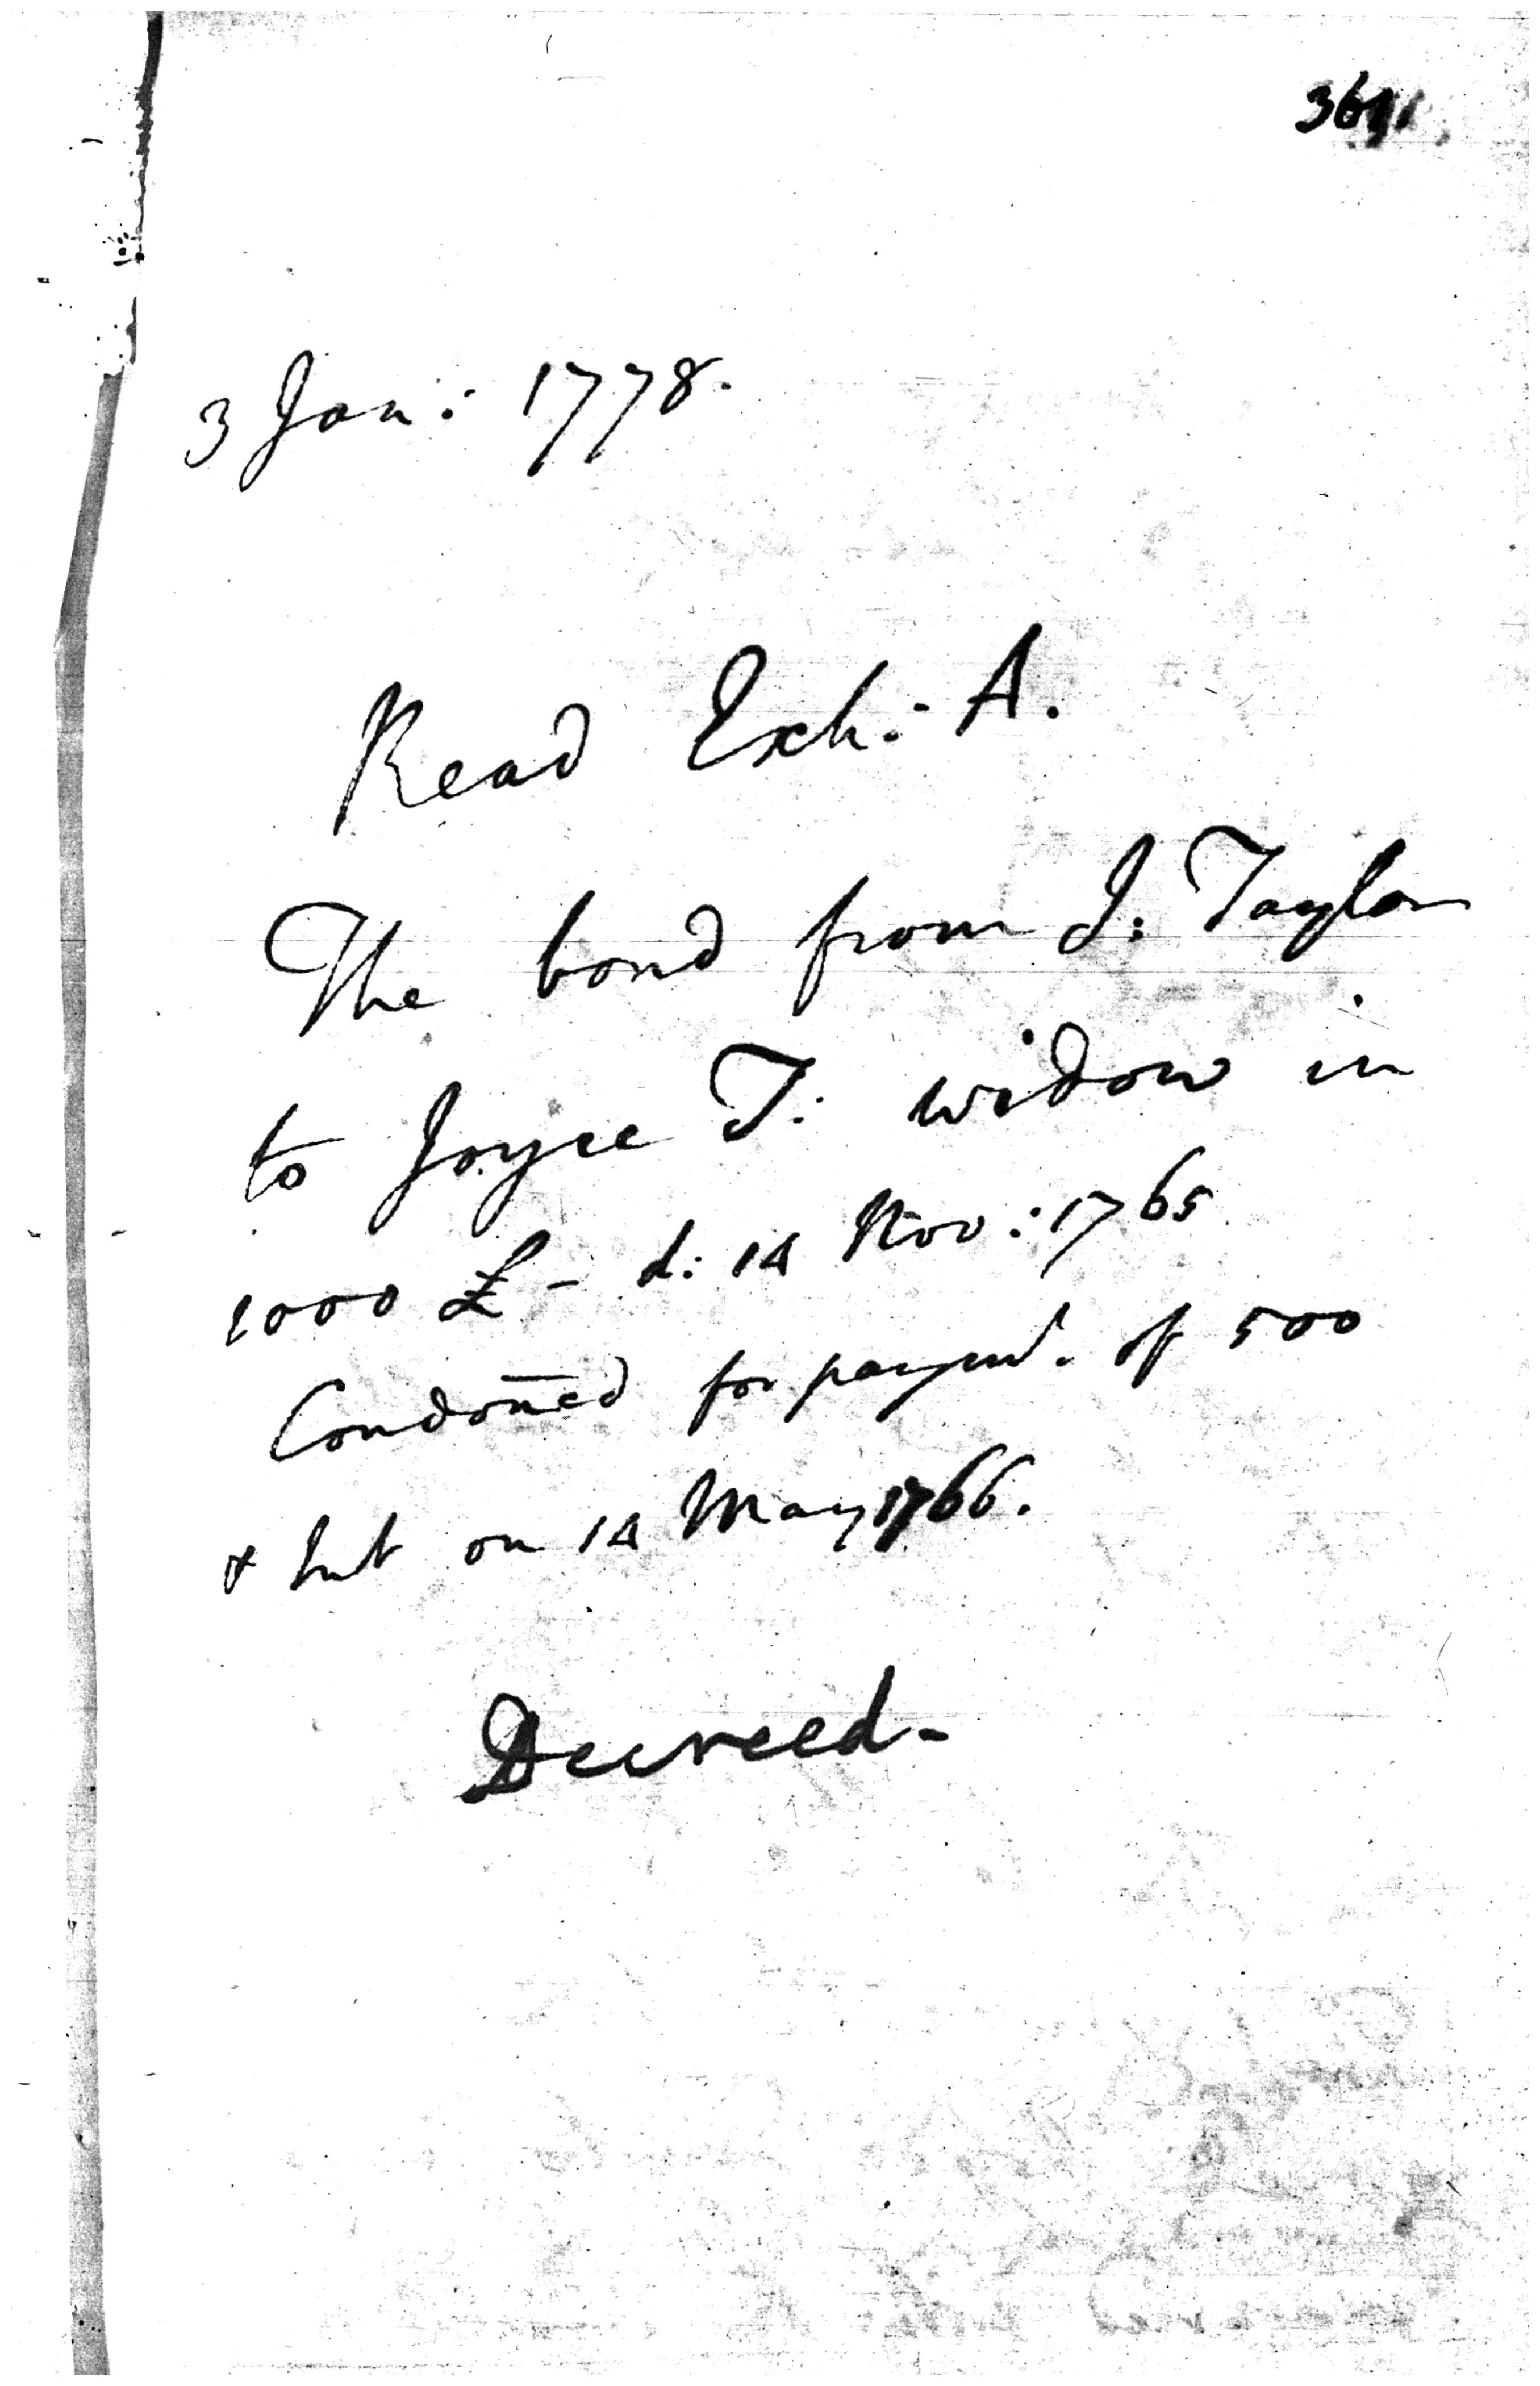 3 Jan: 1778.
Read Exh: A.
The bond from J: Taylor
to Joyce T: widow in
1000 £ - d: 14 Nov: 1765
Condon̄ed for paymt. of 500
& Int on 14 May 1766.
Decreed-